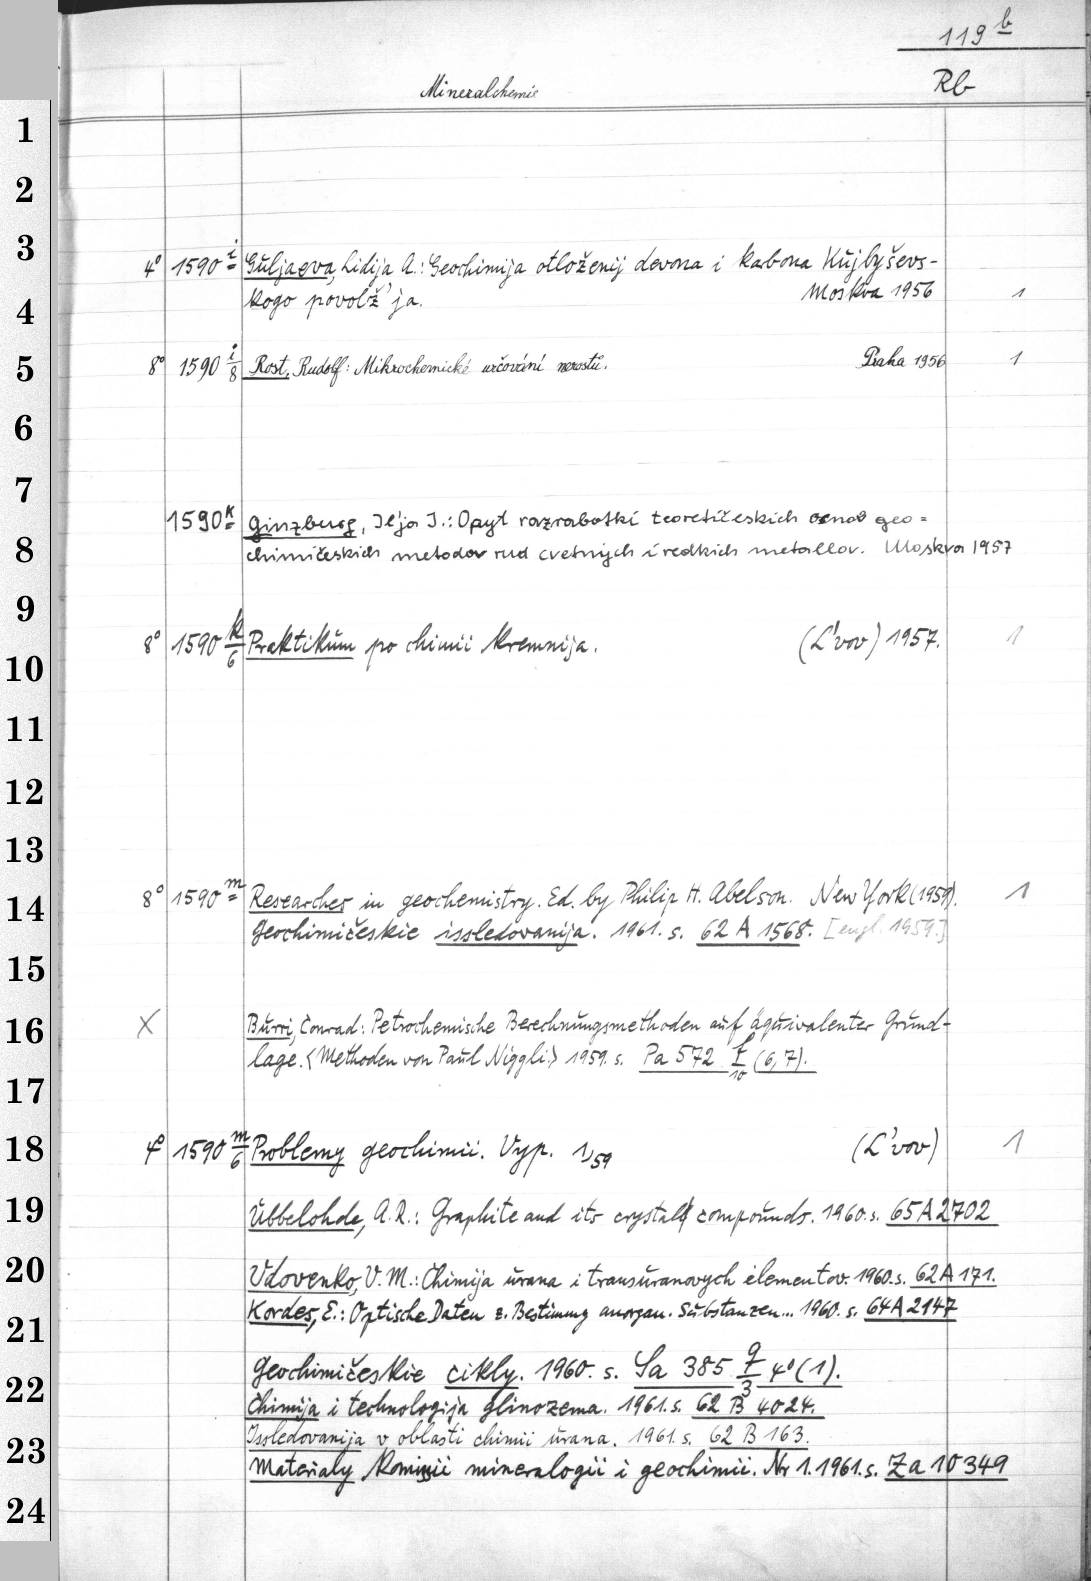 119 b
Mineralchemie Rb
1
2
3
4° 1590 i Guljaeva, Lidija A.: Geochimija otloženij devona i karbona Kujbyševs-
4 kogo povolž'ja. Moskva 1956 1
5 8° 1590 i/8 Rost, Rudolf: Mikrochemické určování nerostů. Praha 1956 1
6
7
1590 k Ginzburg, Il'ja I.: Opyt razrabotki teoretičeskich osnov geo=
8 chimičeskich metodov rud cvetnych i redkich metallov. Moskva 1957
9
8° 1590 k/6 Praktikum po chimii kremnija. (L'vov) 1957. 1
10
11
12
13
14 8° 1590 m Researches in geochemistry. Ed. by Philip H. Abelson. New York (1959). 1
Geochimičeskie issledovanija. 1961. s. 62 A 1568. [engl. 1959.]
15
16 X Burri, Conrad: Petrochemische Berechnungsmethoden auf äquivalenter Grund-
lage. <Methoden von Paul Niggli.> 1959. s. Pa 572 f/10 (6,7).
17
18 4° 1590 m/6 Problemy geochimii. Vyp. 1,59 (L'vov) 1
19 Ubbelohde, A.R.: Graphite and its crystal compounds. 1960. s. 65 A 2702
20 Vdovenko, V. M.: Chimija urana i transuranovych elementov. 1960. s. 62 A 171.
21 Kordes, E.: Optische Daten z. Bestimmg anorgan. Substanzen... 1960. s. 64 A 2147
22 Geochimičeskie cikly. 1960. s. Sa 385 q/3 4° (1).
Chimija i technologija glinozema. 1961. s. 62 B 4024.
Issledovanija v oblasti chimii urana. 1961. s. 62 B 163.
23 Materialy Komissii mineralogii i geochimii. Nr 1. 1961. s. Za 10349
24